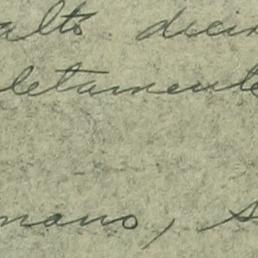 alto decir
letamente
mano, s